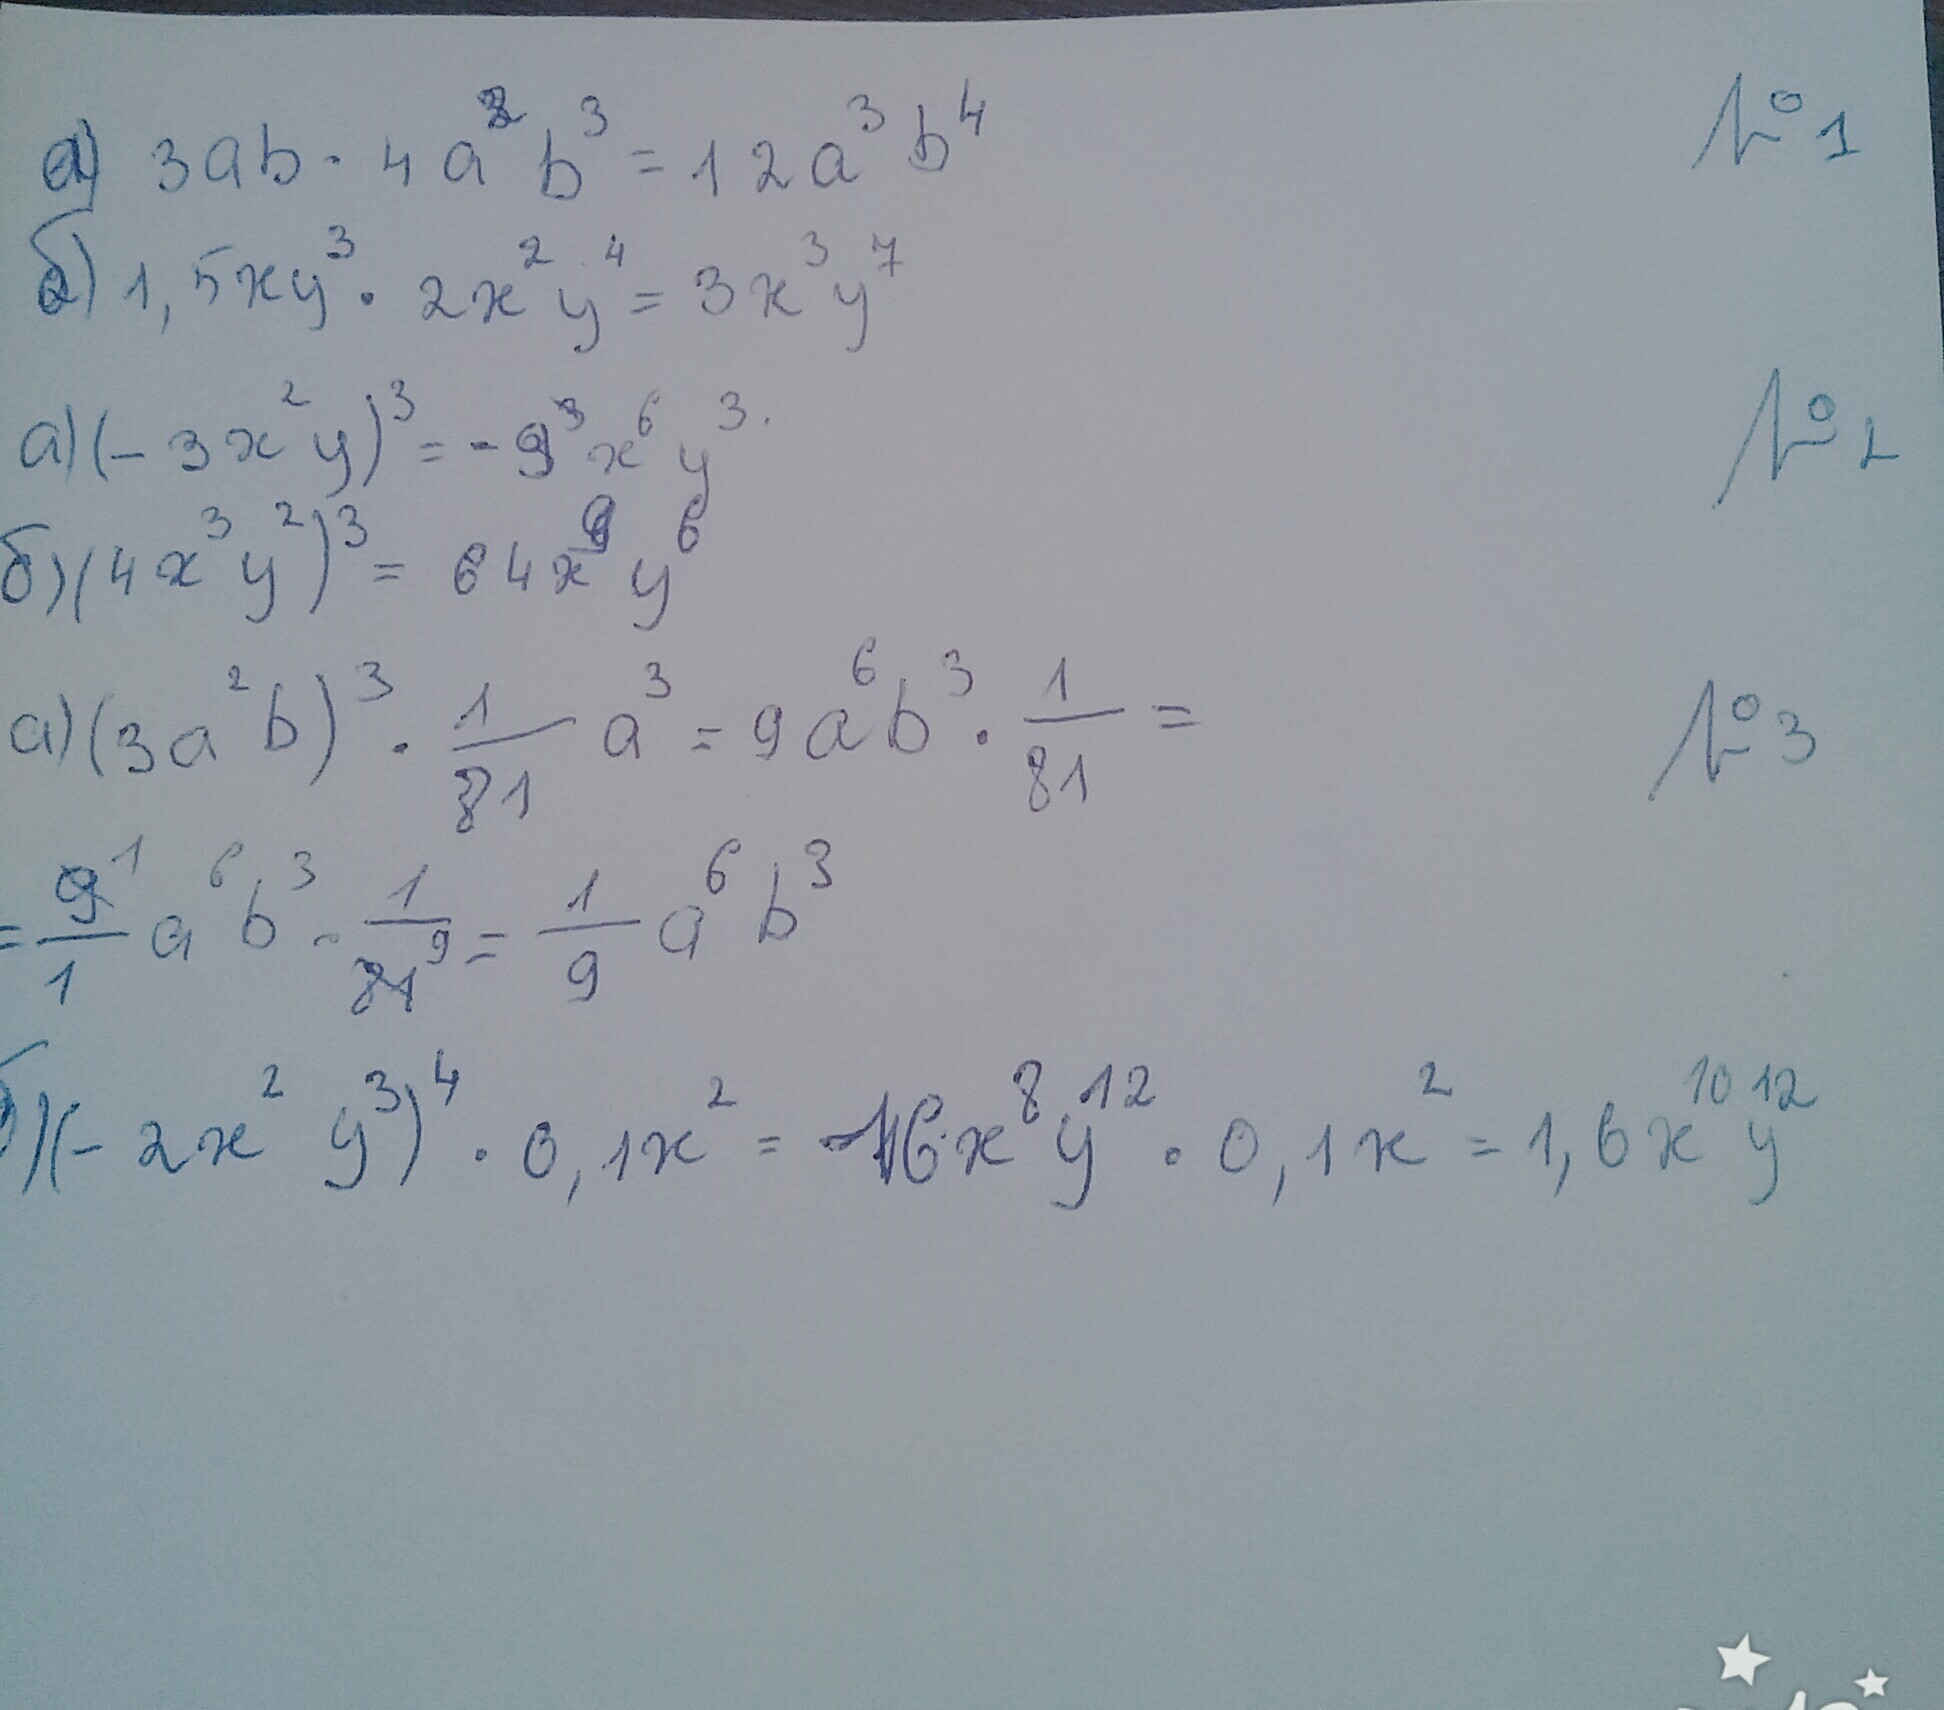 а) 3ab · 4a²b³ = 12a³b⁴ №1
б) 1,5xy³ · 2x²y⁴ = 3x³y⁷
а) (-3x²y)³ = -9³x⁶y³. №2
б) (4x³y²)³ = 64x⁹y⁶
а) (3a²b)³ · 1/81 a³ = 9a⁶b³ · 1/81 = №3
= 9¹/1 a⁶b³ · 1/81⁹ = 1/9 a⁶b³
б) (-2x²y³)⁴ · 0,1x² = 16x⁸y¹² · 0,1x² = 1,6x¹⁰y¹²